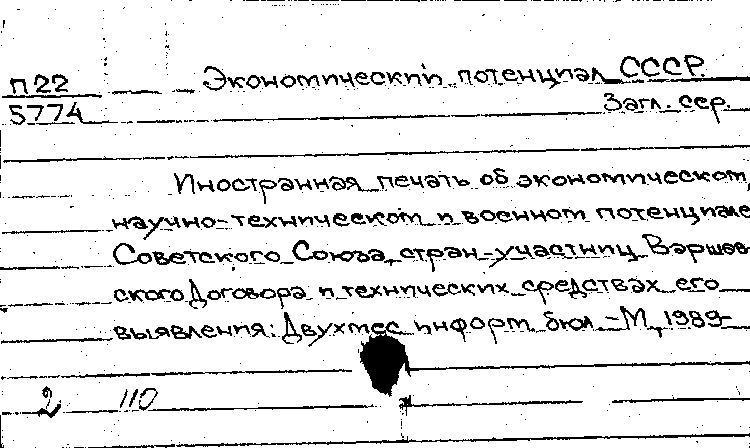 П22
5774
Экономический потенциал СССР.
Загл. сер.
Иностранная печать об экономическом,
научно-техническом и военном потенциале
Советского Союза, стран-участниц Варшав-
ского Договора и технических средствах его
выявления: Двухмес. информ. бюл. - М., 1989-
2 110